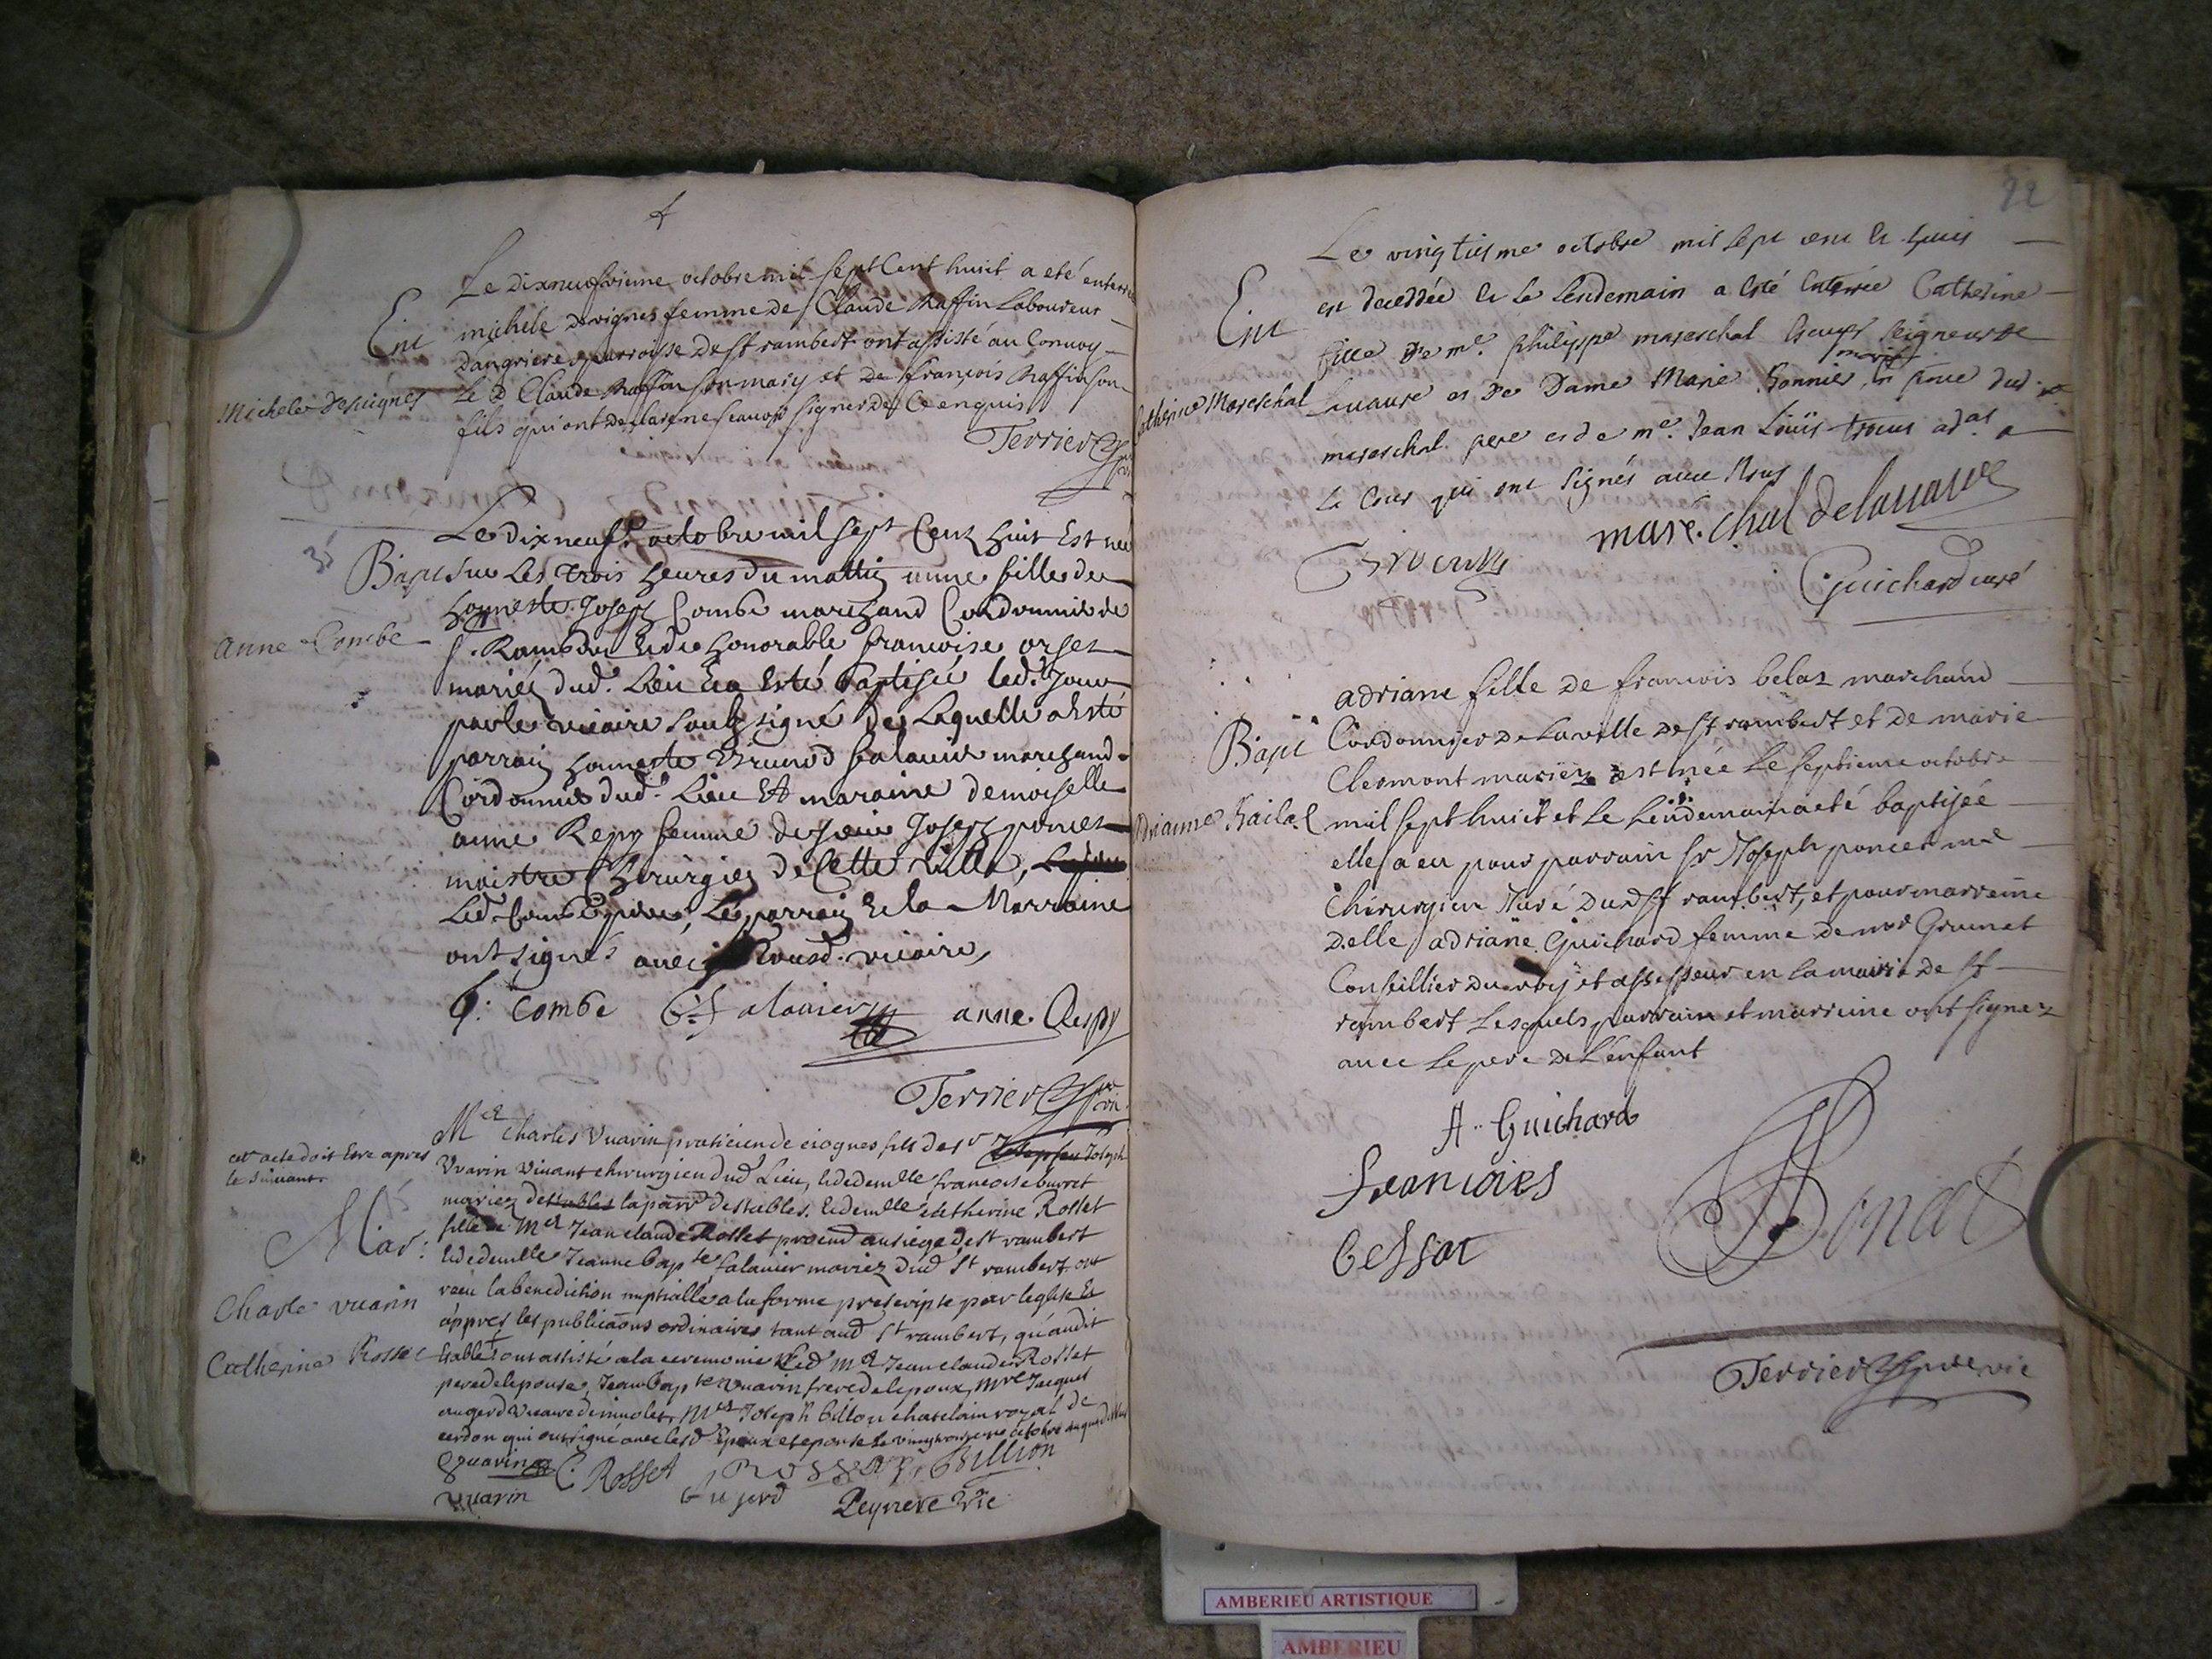 Le dixneufvieme octobre mil sept Cent huict a eté enterrée
Ent
michele devignes femme de Claude Raffin Laboureur
Dangrieres parroisse de st rambert ont assisté au Convoy
Michele Desuignes
Le d Claude Raffin son mary et de françois Raffin son
fils qui ont declaré ne scauoir signer de ce enquis
Terrier
Le dixneufe octobre mil sept Cent huit Est nee
Bapt
sur Les trois heures du mattin unne fille de
honneste Joseph Combe marchand Cordonnier de
Anne Combe
st. Rambert Et de honorable francoise orset
mariéz dud. Lieu Et a esté Baptisée led. Jour
par le vicaire soubsigné De Laquelle a Esté
parrain honneste falavier marchand
Cordonnier dud. Lieu Et maraine demoiselle
anne Repy femme de sieur Joseph poncet
maistre Chirurgien de Cette ville,
Led. Combe pere, Le parrain Et la Marraine
ont signés avec sousd. vicaire,
Combe falavier anne Respy
Terrier
cet acte doit Estre apres
le suivant
Mar:
Charle vuarin
Catherine Rosset
Mre Charles Vuarin praticien de fils de sr Joseph
Vuarin vivant chirurgien dud Lieu, et de demlle francoise buvret
mariez destables la parr destables. Et demlle catherine Rosset
fille de Mre Jean claude Rosset au siege de st rambert
Et de demlle Jeanne Bapte falavier mariez dud st rambert ont
receu la benediction nuptialle a la forme prescripte par leglise Et
appres les publicaons ordinaires tant aud st rambert, qu'audit
Estables ont assisté a la ceremonie Led Mre Jean claude Rosset
pere de lepouse, Jean Bapte vuarin frere de lepoux, Mre Jacques
augerd Mre Joseph billon chatelain royal de
cerdon qui ont signé avec lesd Epoux et epouse Le octobre
vuarin C. Rosset Rosset Billion
vuarin Aujerd Peynere vic
22
Le vingtiesme octobre mil sept cent et huit
Ent
est deceddée et le Lendemain a esté Enterrée Catherine
fille de me. philippe mareschal Seigneur de
Catherine Mareschal
Lavaure et de Dame Marie Bonnier
mareschal pere et de me. Jean Loüis
La Cour qui ont signés avec Nous
mareschal delavaure
Guichard curé
adriane fille de francois belaz marchand
Bapt
Cordonnier de la ville de st rambert et de marie
Clermont mariez est née Le septieme octobre
mil sept huict et le Lendemain a eté baptisée
elle a eu pour parrain sr Joseph poncet me
Chirurgien Juré dud st rambert, et pour marreine
delle adriane Guichard femme de mr Grumet
Conseillier du roy et assesseur en la mairie de st
rambert Lesquels parrain et marreine ont signez
avec Le pere de L'enfant
A. Guichard
francoies
Ponset
Terrier vic
AMBERIEU ARTISTIQUE
AMBERIEU